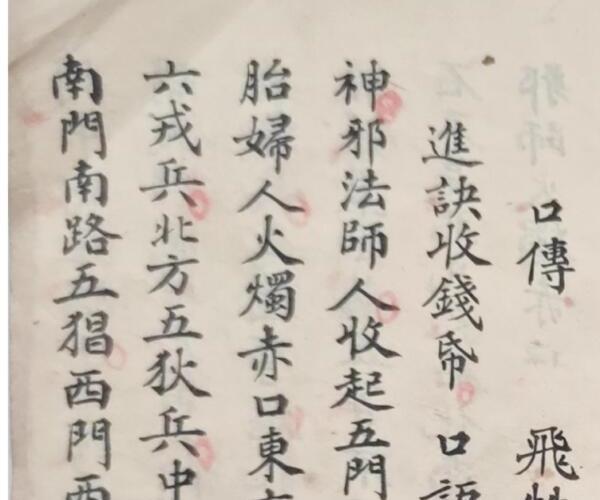 口傳 飛
進訣收錢帋 口語
神邪法師人收起五門
胎婦人火燭赤口東
六戎兵北方五狄兵中
南門南路五猖西門西